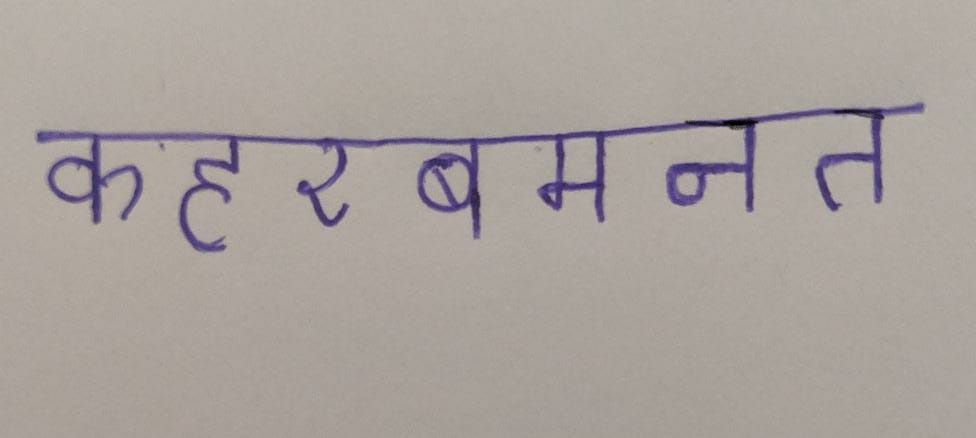 कहरबमनत